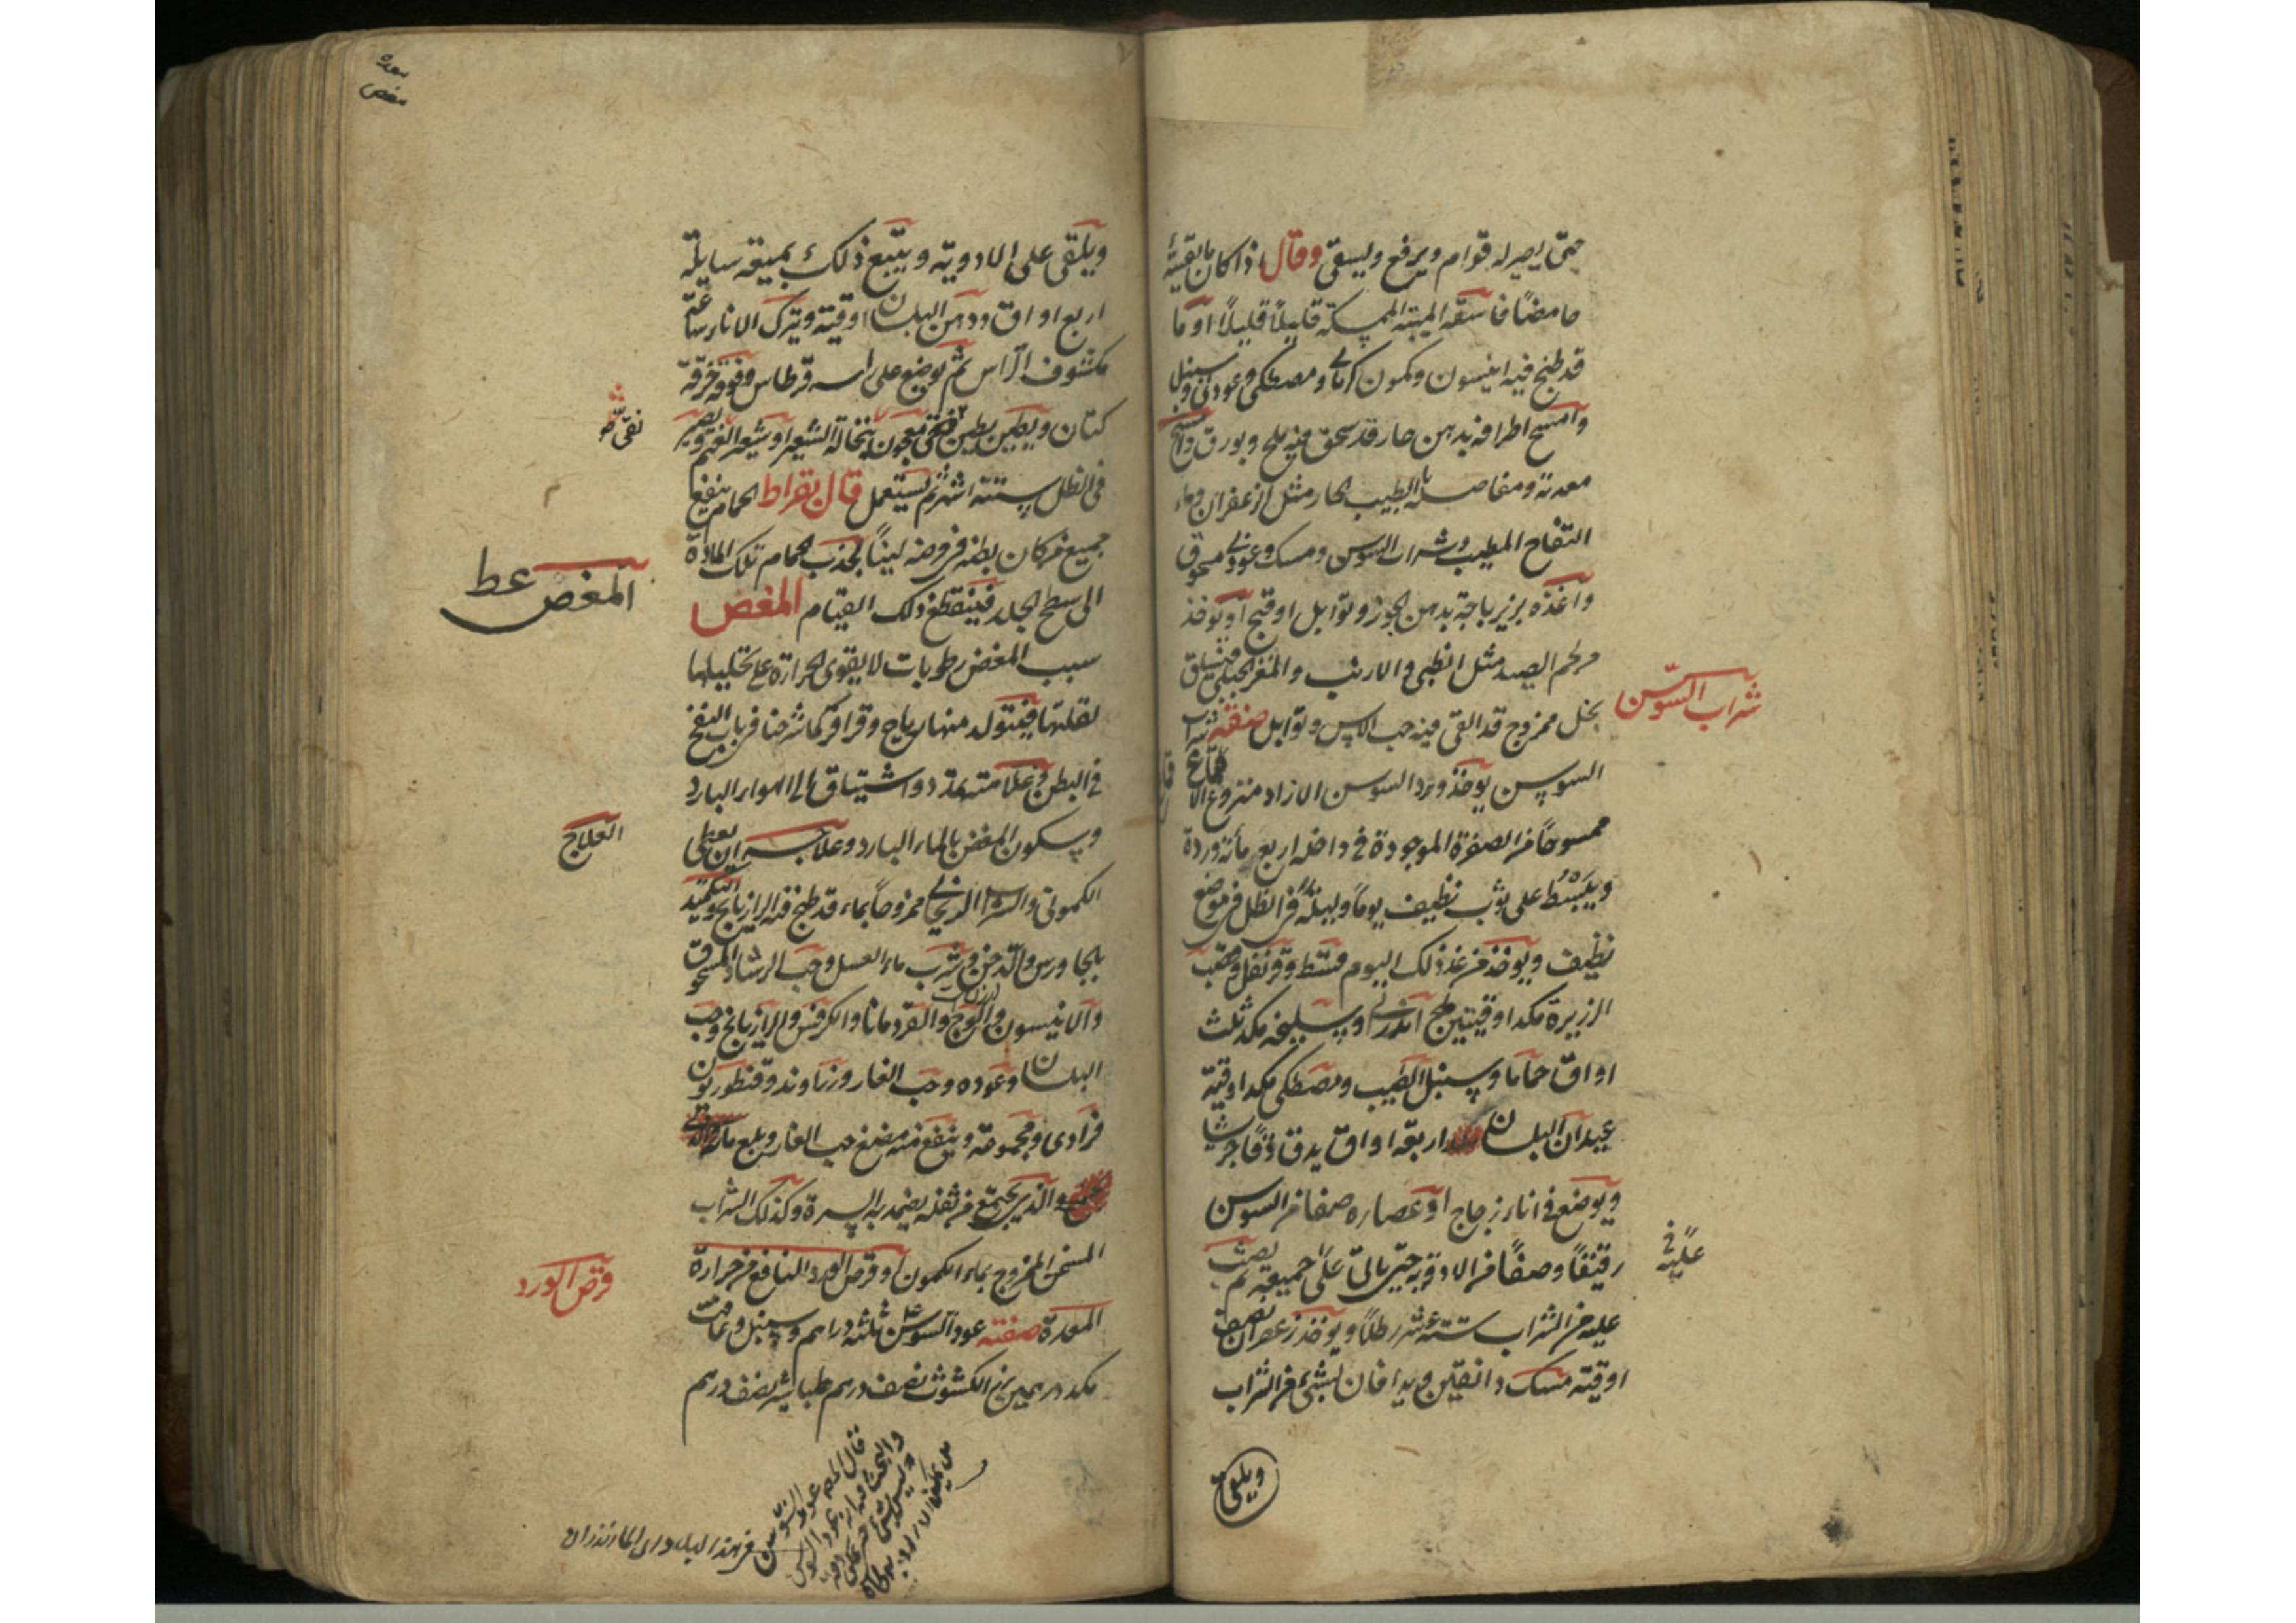 حتى يصير له قوام ويرفع ويسقى وقال اذا كان ما يقيئه
حامضًا فاسقه الميبه الممسكة قليلًا قليلًا او ما
قد طبخ فيه انيسون وكمون كرماني ومصطكى وعود ني وسنبل
وامسح اطرافه بدهن حار قد سحق فيه ملح وبورق وامسح
معدته ومفاصله بالطيب الحار مثل الزعفران وماء
التفاح المطيب وشراب السوسن ومسك وعود ني مسحوق
واغذه بزيرباجة بدهن الجوز وتوابل او قبج او يوخذ
من لحم الصيد مثل الظبي والارنب والمغز الجبلي
بخل ممزوج قد القى فيه حب الاس وتوابل صفة شراب
شراب السوسن
السوسن يوخذ ورد السوسن الازاد منزوع الاقماع
ممسوحًا من الصفرة الموجودة في داخله اربع مائة وردة
ويبسط على ثوب نظيف يومًا وليلة في الظل في موضع
نظيف ويوخذ من غد ذلك اليوم قسط وقرنفل وقصب
الزريرة مكد اوقيتين ملح اندراني او سليخه مكد ثلث
اواق حماما وسنبل الطيب ومصطكى مكد اوقية
عيدان البلسان اربعة اواق يدق دقًا جريشا
ويوضع في اناء زجاج او عصاره صفا من السوسن
رقيقًا وصفًا من الادوية حتى ياتى على جميعه ثم يصب
عليه من الشراب ستة عشر رطلًا ويوخذ زعفران نصف
اوقية مسك دانقين ويدافان بشئ من الشراب
ويلقى
معده
مغص
ويلقى على الادوية ويتبع ذلك بميعة سايلة
اربع اواق ودهن البلسان اوقية ويترك الاناء ساعة
مكشوف الراس ثم يوضع على راسه قرطاس وفوقه خرقة
كتان ويطين بطين معجون بنخالة الشعير او شعر الغنم ويصير
في الظل ستة اشهر ثم يستعمل قال بقراط الحمام ينفع
جميع من كان بطنه في مرضه لينًا لجذب الحمام تلك المادة
الى سطح الجلد فينقطع ذلك القيام المغص
المغص عط
سبب المغص رطوبات لا يقوى الحرارة على تحليلها
لقلتها فيتولد منها رياح وقراقر كما شرحنا في باب النفخ
في البطن وعلامته تمدد واشتياق الى الهواء البارد
وسكون المغص بالماء البارد وعلاجه ان يعطى
العلاج
الكمونى والشراب الريحاني ممزوجًا بماء قد طبخ فيه الرازيانج والتكميد
بالجاورس والدخن وشرب ماء العسل وحب الرشاد المسحوق
والانيسون والوج والقردمانا والكرفس والرازيانج وحب
البلسان وعوده وحب الغار وزراوند وقنطوريون
فرادى ومجموعة وينفع منه مضغ حب الغار وبلع مائه
والذي يجتمع من ثفله يضمد به السرة وكذلك الشراب
المسخن الممزوج بماء الكمون او قرص الورد النافع من حرارة
قرص الورد
المعدة صفته عود السوس ثلثة دراهم وسنبل
مكد درهمين بزر الكشوث نصف درهم طباشير نصف درهم